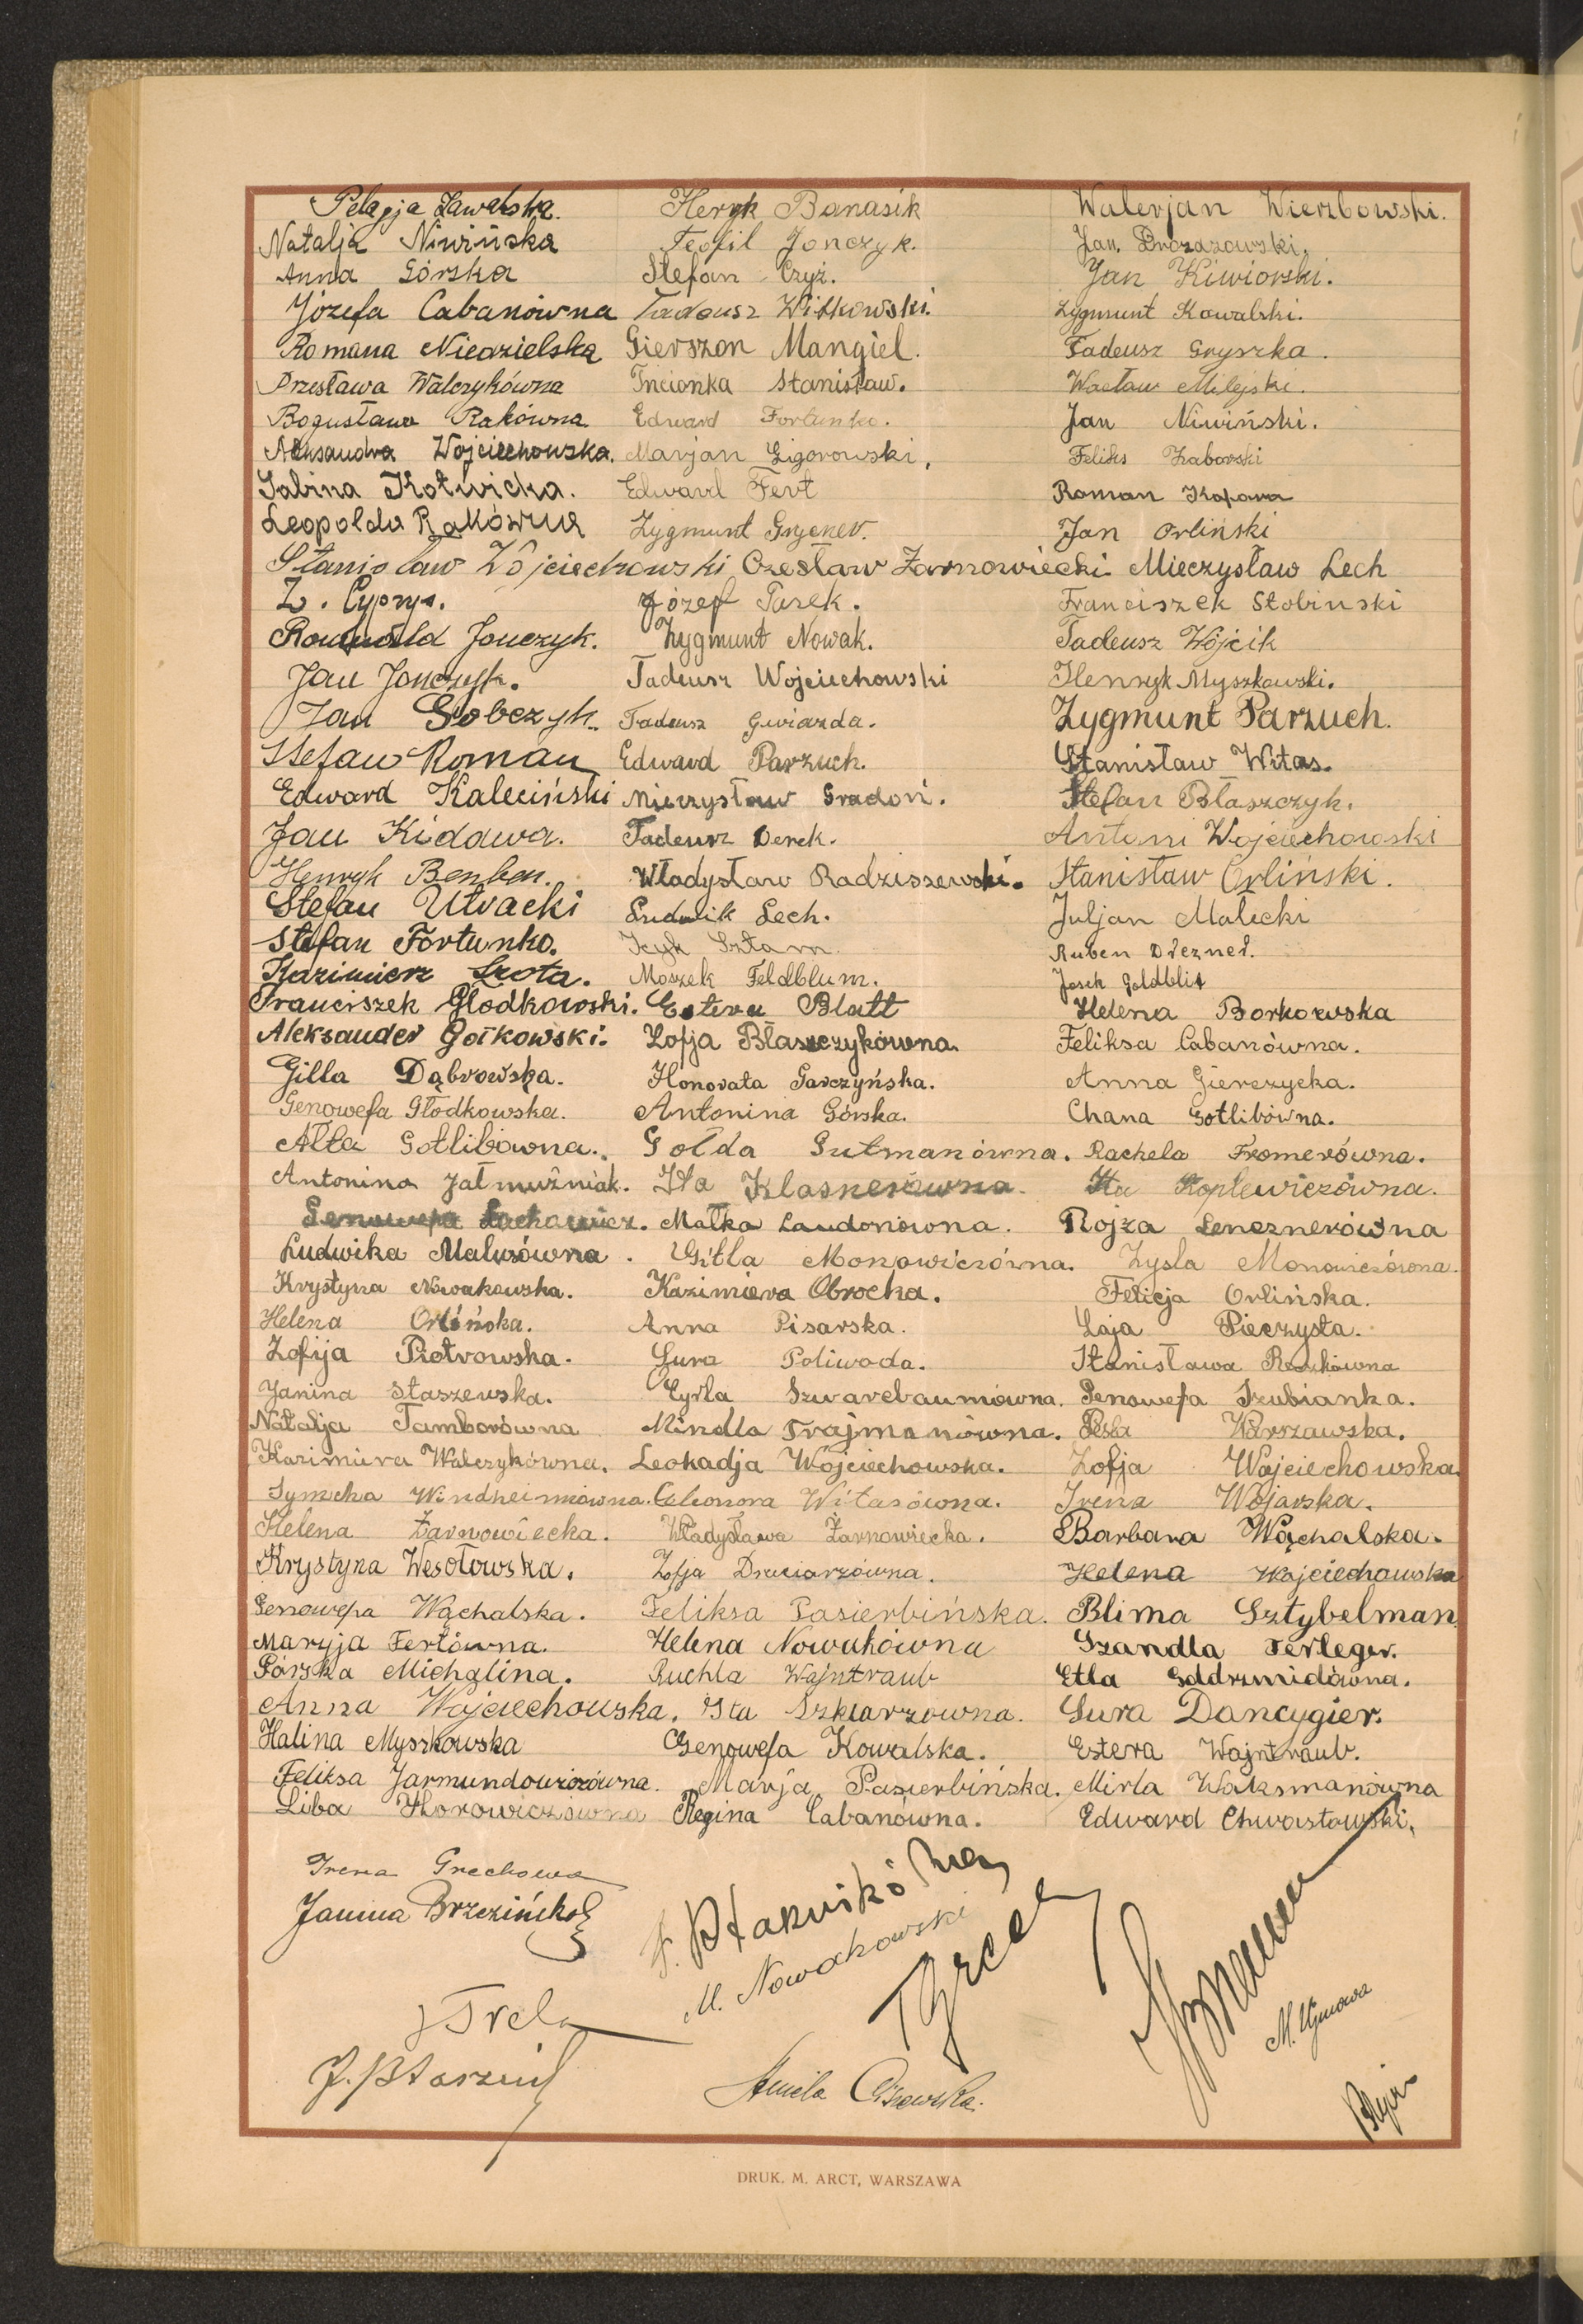 Pelagja Zawalska. Heryk Banasik Walerjan Wierzbowski.
Natalja Niwińska Teofil Jonczyk. Jan Brozozowski.
Anna Górska Stefan Czyż. Jan Kiwiorski.
Józefa Cabanówna Tadeusz Witkowski. Zygmunt Kowalski.
Romana Niedzielska Gierszon Mangiel. Tadeusz Gryszka.
Walczykówna Stanisław. Wacław Milejski.
Bogusława Rakówna. Edward Fortunko. Jan Niwiński.
Aleksandra Wojciechowska. Marjan Gigorowski, Feliks Zaborski
Sabina Kotwicka. Edward Fert Roman Kopowa
Leopolda Rakówna Zygmunt Jan Orliński
Stanisław Wójciechowski Czesław Żarnowiecki Mieczysław Lech
Z. Cyprys. Józef Pasek. Franciszek Stobinski
Romuald Jonczyk. Zygmunt Nowak. Tadeusz Wójcik
Jan Jonczyk. Tadeusz Wojciechowski Henryk Myszkowski.
Jan Sobczyk. Tadeusz Gwiazda. Zygmunt Parzuch.
Stefan Roman Edward Parzuch. Stanisław Witas.
Edward Kaleciński Mieczysław Gradoń. Stefan Błaszczyk.
Jan Kidawa. Tadeusz Derek. Antoni Wojciechowski
Henryk Benben. Władysław Radziszewski. Stanisław Orliński.
Stefan Utracki Ludwik Lech. Juljan Malecki
Stefan Fortunko. Icyk Sztam. Ruben Drezner.
Kazimierz Szota. Moszek Feldblum. Josek Goldblit
Franciszek Głodkowski. Estera Blatt Helena Borkowska
Aleksander Gołkowski. Zofja Błaszczykówna. Feliksa Cabanówna.
Gilla Dąbrowska. Honorata Garczyńska. Anna Gierczycka.
Genowefa Głodkowska. Antonina Górska. Chana Gotlibówna.
Ałta Gotlibówna. Gołda Gutmanówna. Rachela Fromerówna.
Antonina Jałmużniak. Ita Klasnerówna. Ita Koplewiczówna.
Genowefa Lachowicz. Małka Landonówna. Rojza Lenoznerówna
Ludwika Malusówna. Gitla Monowiczówna. Zysla Monowiczówna.
Krystyna Nowakowska. Kazimiera Obrocka. Felicja Orlińska.
Helena Orlińska. Anna Pisarska. Łaja Pieczysta.
Zofija Piotrowska. Sura Poliwoda. Stanisława Roszkówna
Janina Staszewska. Cyrla Szwarcbaumówna. Genowefa Szubianka.
Natalja Tamborówna Mindla Trajmanówna. Pesla Warszawska.
Kazimiera Walczykówna. Leokadja Wójciechowska. Zofja Wojciechowska.
Symcha Windheimówna. Eleonora Witasówna. Irena Wojarska.
Helena Żarnowiecka. Władysława Żarnowiecka. Barbara Wąchalska.
Krystyna Wesołowska. Zofja Druciarzówna. Helena Wojciechowska
Genowefa Wąchalska. Feliksa Pasierbińska. Blima Sztybelman.
Maryja Fertówna. Helena Nowakówna Szandla Ferleger.
Górska Michalina. Ruchla Wajntraub Etla Goldszmidówna.
Anna Wojciechowska. Ita Szklarzówna. Sura Dancygier.
Halina Myszkowska Genowefa Kowalska. Estera Wajntraub.
Feliksa Jarmundowiczówna. Marja Pasierbińska. Mirla Waksmanówna
Liba Horowiczówna Regina Cabanówna. Edward Chwastowski.
Irena Grechowa
Janina Brzezińska
M. Nowakowski
Trela
Aniela
DRUK. M. ARCT, WARSZAWA